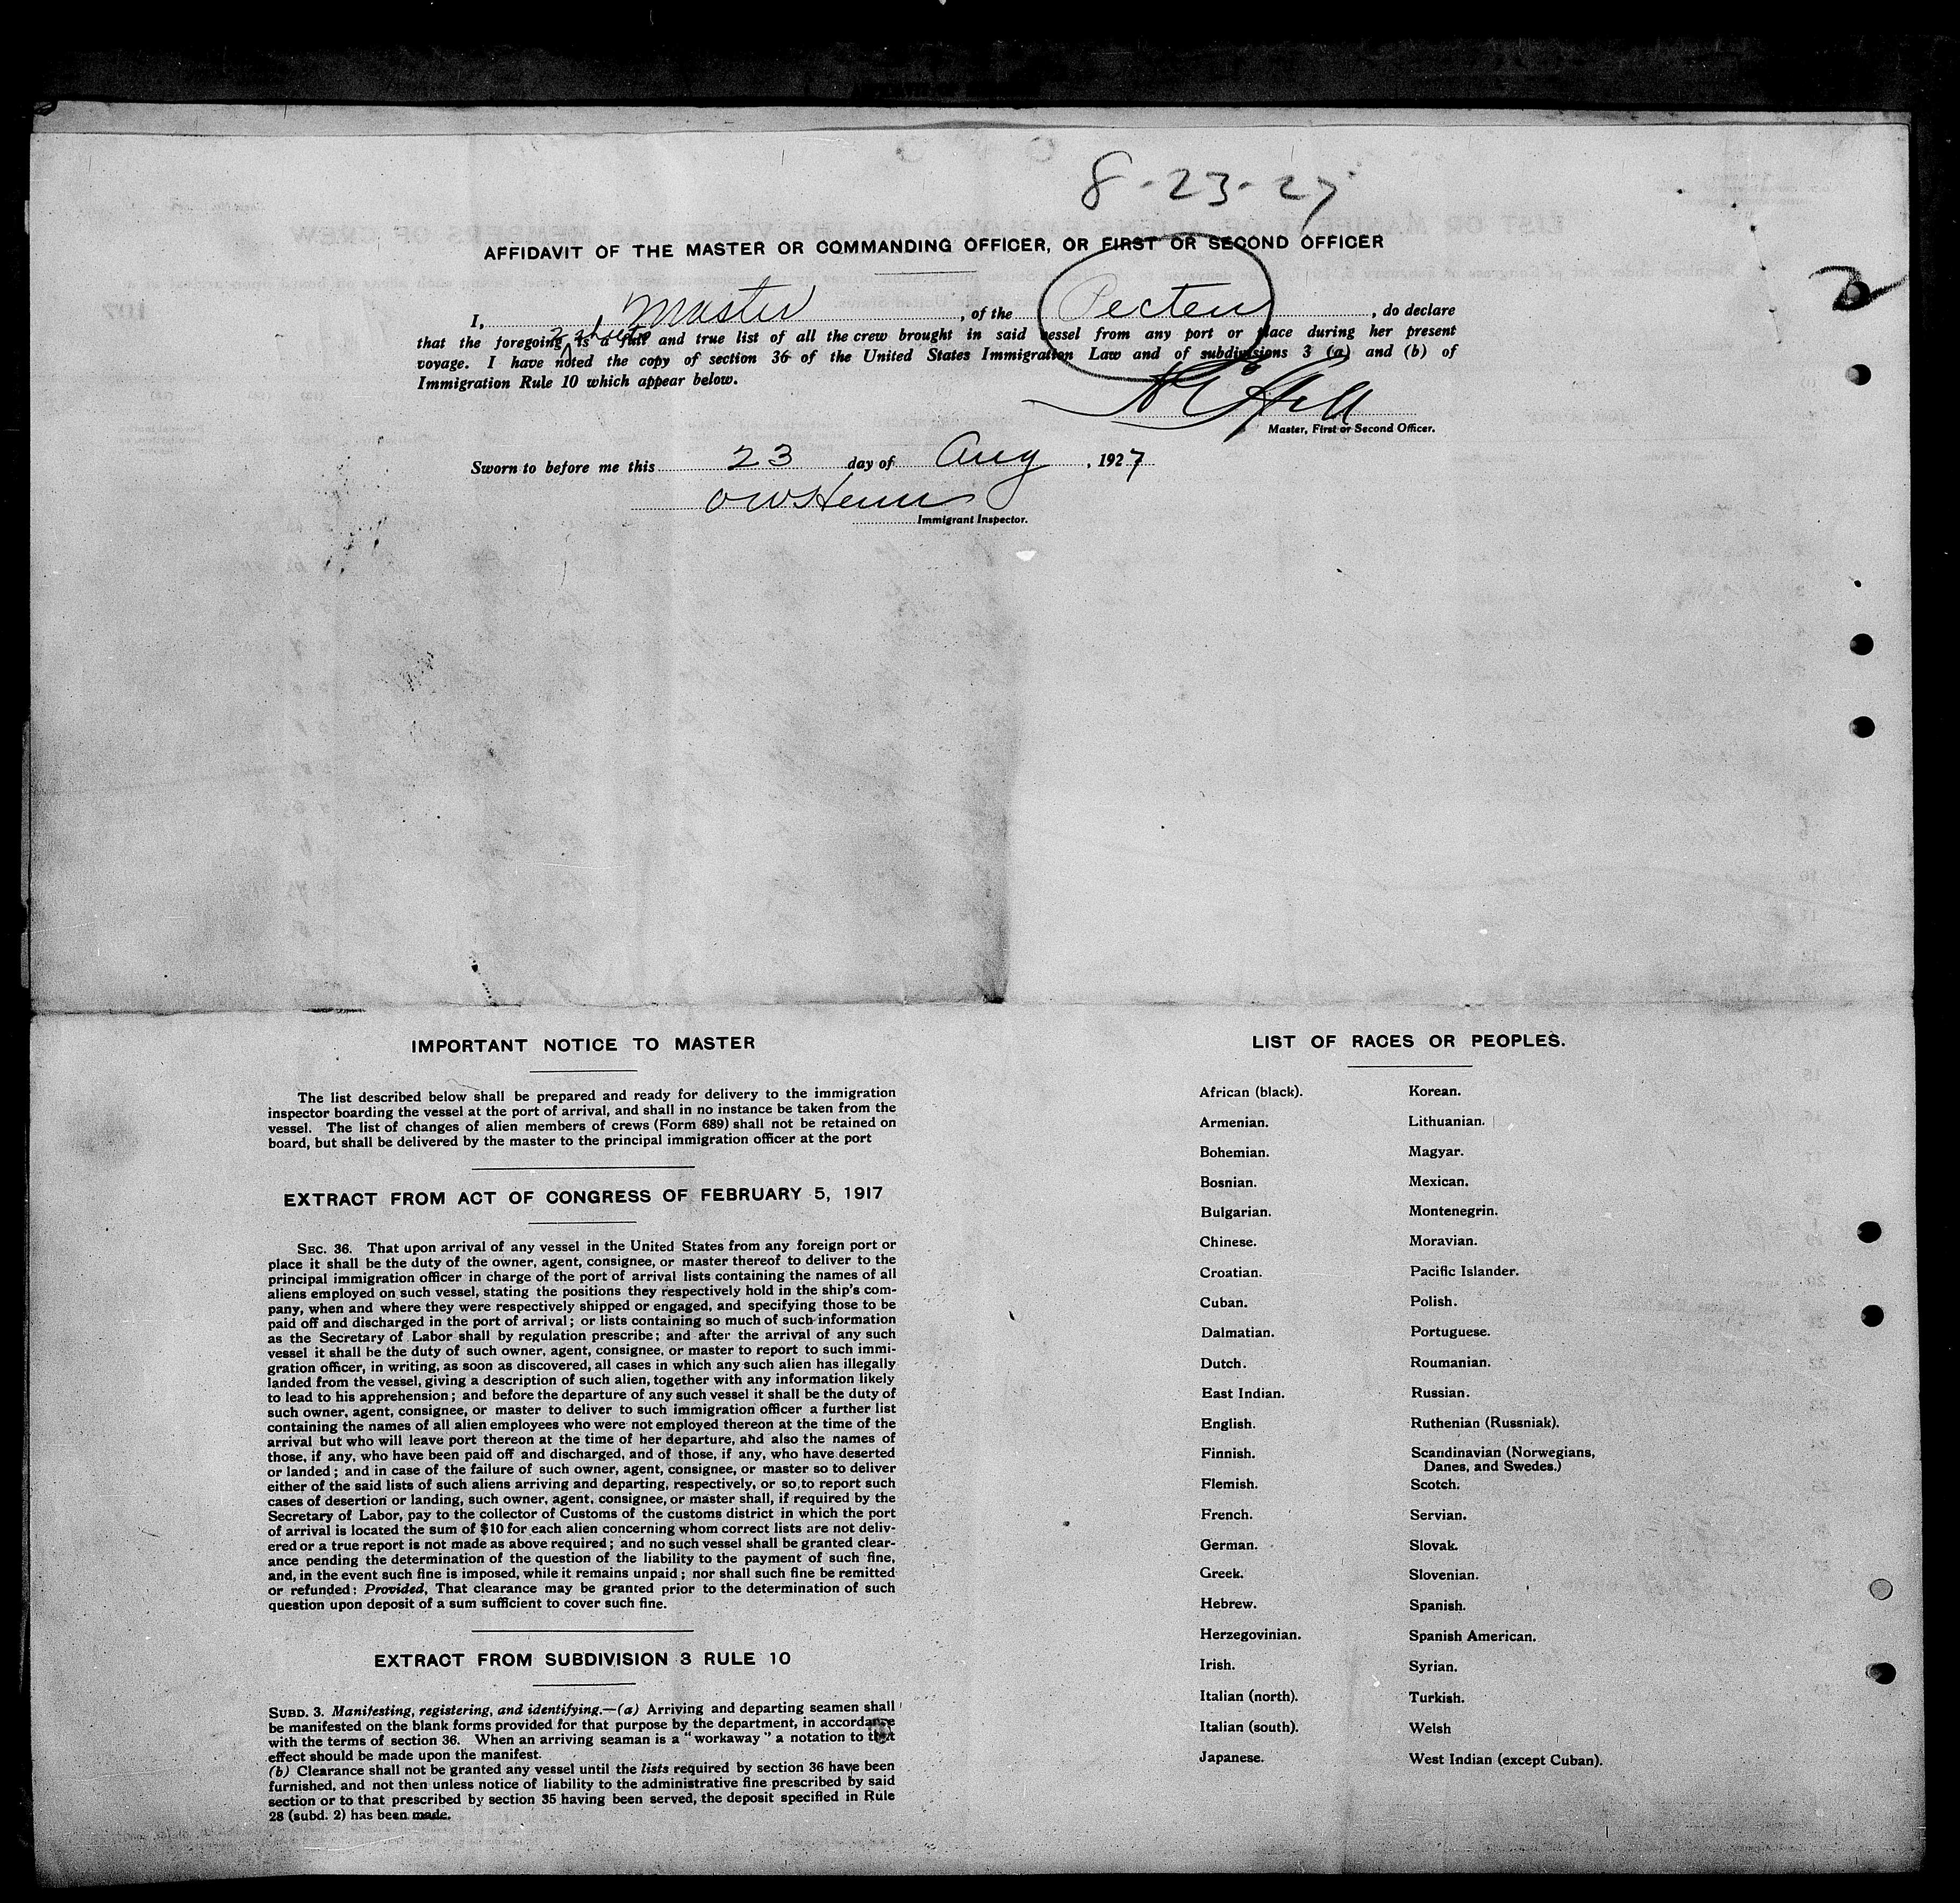 8-23-27
AFFIDAVIT OF THE MASTER OR COMMANDING OFFICER, OR FIRST OR SECOND OFFICER
2
I, Master, of the Pecten, do declare
2 sheets
that the foregoing is a full and true list of all the crew brought in said vessel from any port or place during her present
voyage. I have noted the copy of section 36 of the United States Immigration Law and of subdivisions 3 (a) and (b) of
Immigration Rule 10 which appear below.
Master, First or Second Officer.
Sworn to before me this 23 day of Aug, 1927
Immigrant Inspector.
IMPORTANT NOTICE TO MASTER
The list described below shall be prepared and ready for delivery to the immigration
inspector boarding the vessel at the port of arrival, and shall in no instance be taken from the
vessel. The list of changes of alien members of crews (Form 689) shall not be retained on
board, but shall be delivered by the master to the principal immigration officer at the port
EXTRACT FROM ACT OF CONGRESS OF FEBRUARY 5, 1917
SEC. 36. That upon arrival of any vessel in the United States from any foreign port or
place it shall be the duty of the owner, agent, consignee, or master thereof to deliver to the
principal immigration officer in charge of the port of arrival lists containing the names of all
aliens employed on such vessel, stating the positions they respectively hold in the ship's com-
pany, when and where they were respectively shipped or engaged, and specifying those to be
paid off and discharged in the port of arrival; or lists containing so much of such information
as the Secretary of Labor shall by regulation prescribe; and after the arrival of any such
vessel it shall be the duty of such owner, agent, consignee, or master to report to such immi-
gration officer, in writing, as soon as discovered, all cases in which any such alien has illegally
landed from the vessel, giving a description of such alien, together with any information likely
to lead to his apprehension; and before the departure of any such vessel it shall be the duty of
such owner, agent, consignee, or master to deliver to such immigration officer a further list
containing the names of all alien employees who were not employed thereon at the time of the
arrival but who will leave port thereon at the time of her departure, and also the names of
those, if any, who have been paid off and discharged, and of those, if any, who have deserted
or landed; and in case of the failure of such owner, agent, consignee, or master so to deliver
either of the said lists of such aliens arriving and departing, respectively, or so to report such
cases of desertion or landing, such owner, agent, consignee, or master shall, if required by the
Secretary of Labor, pay to the collector of Customs of the customs district in which the port
of arrival is located the sum of $10 for each alien concerning whom correct lists are not deliv-
ered or a true report is not made as above required; and no such vessel shall be granted clear-
ance pending the determination of the question of the liability to the payment of such fine,
and, in the event such fine is imposed, while it remains unpaid; nor shall such fine be remitted
or refunded: Provided, That clearance may be granted prior to the determination of such
question upon deposit of a sum sufficient to cover such fine.
EXTRACT FROM SUBDIVISION 3 RULE 10
SUBD. 3. Manifesting, registering, and identifying.—(a) Arriving and departing seamen shall
be manifested on the blank forms provided for that purpose by the department, in accordance
with the terms of section 36. When an arriving seaman is a "workaway" a notation to that
effect should be made upon the manifest.
(b) Clearance shall not be granted any vessel until the lists required by section 36 have been
furnished, and not then unless notice of liability to the administrative fine prescribed by said
section or to that prescribed by section 35 having been served, the deposit specified in Rule
28 (subd. 2) has been made.
LIST OF RACES OR PEOPLES.
African (black).
Armenian.
Bohemian.
Bosnian.
Bulgarian.
Chinese.
Croatian.
Cuban.
Dalmatian.
Dutch.
East Indian.
English.
Finnish.
Flemish.
French.
German.
Greek.
Hebrew.
Herzegovinian.
Irish.
Italian (north).
Italian (south).
Japanese.
Korean.
Lithuanian.
Magyar.
Mexican.
Montenegrin.
Moravian.
Pacific Islander.
Polish.
Portuguese.
Roumanian.
Russian.
Ruthenian (Russniak).
Scandinavian (Norwegians,
Danes, and Swedes.)
Scotch.
Servian.
Slovak.
Slovenian.
Spanish.
Spanish American.
Syrian.
Turkish.
Welsh
West Indian (except Cuban).